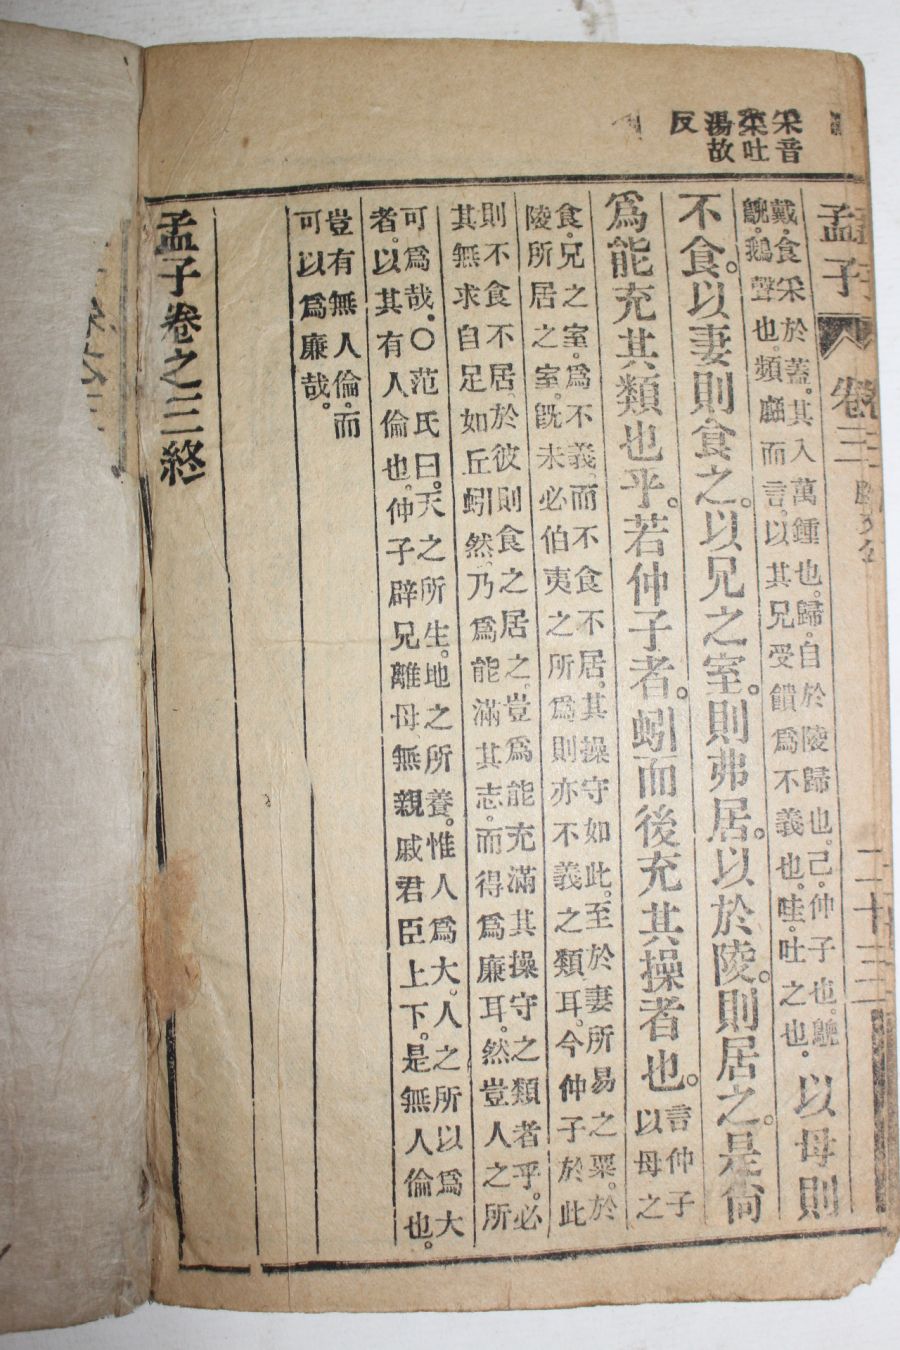 采音
菜吐
湯故
反
孟子 卷三 滕文公 二十三
戴。食采於蓋。其入萬鍾也。歸。自於陵歸也。己。仲子也。鶃
鶃。鵝聲也。頻顣而言。以其兄受饋爲不義也。哇。吐之也。
以母則
不食。以妻則食之。以兄之室。則弗居。以於陵。則居之。是尙
爲能充其類也乎。若仲子者。蚓而後充其操者也。
言仲子
以母之
食。兄之室。爲不義。而不食不居。其操守如此。至於妻所易之粟。於
陵所居之室。旣未必伯夷之所爲則亦不義之類耳。今仲子於此
則不食不居。於彼則食之居之。豈爲能充滿其操守之類者乎。必
其無求自足如丘蚓然。乃爲能滿其志。而得爲廉耳。然豈人之所
可爲哉。〇范氏曰。天之所生。地之所養。惟人爲大。人之所以爲大
者。以其有人倫也。仲子辟兄離母無親戚君臣上下。是無人倫也。
豈有無人倫。而
可以爲廉哉。
孟子卷之三終